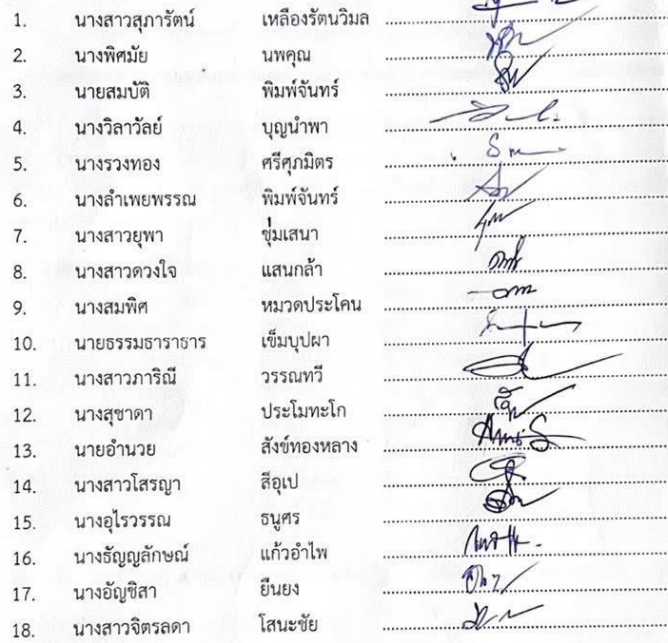 1. นางสาวสุภารัตน์ เหลืองรัตนวิมล
2. นางพิศมัย นพคุณ
3. นายสมบัติ พิมพ์จันทร์
4. นางวิลาวัลย์ บุญนำพา
5. นางรวงทอง ศรีศุภมิตร
6. นางลำเพยพรรณ พิมพ์จันทร์
7. นางสาวยุพา ชุ่มเสนา
8. นางสาวดวงใจ แสนกล้า
9. นางสมพิศ หมวดประโคน
10. นายธรรมธาราธาร เข็มบุปผา
11. นางสาวภาริณี วรรณทวี
12. นางสุชาดา ประโมทะโก
13. นายอำนวย สังข์ทองหลาง
14. นางสาวโสรญา สีอุเป
15. นางอุไรวรรณ ธนูศร
16. นางธัญญลักษณ์ แก้วอำไพ
17. นางอัญชิสา ยืนยง
18. นางสาวจิตรลดา โสนะชัย